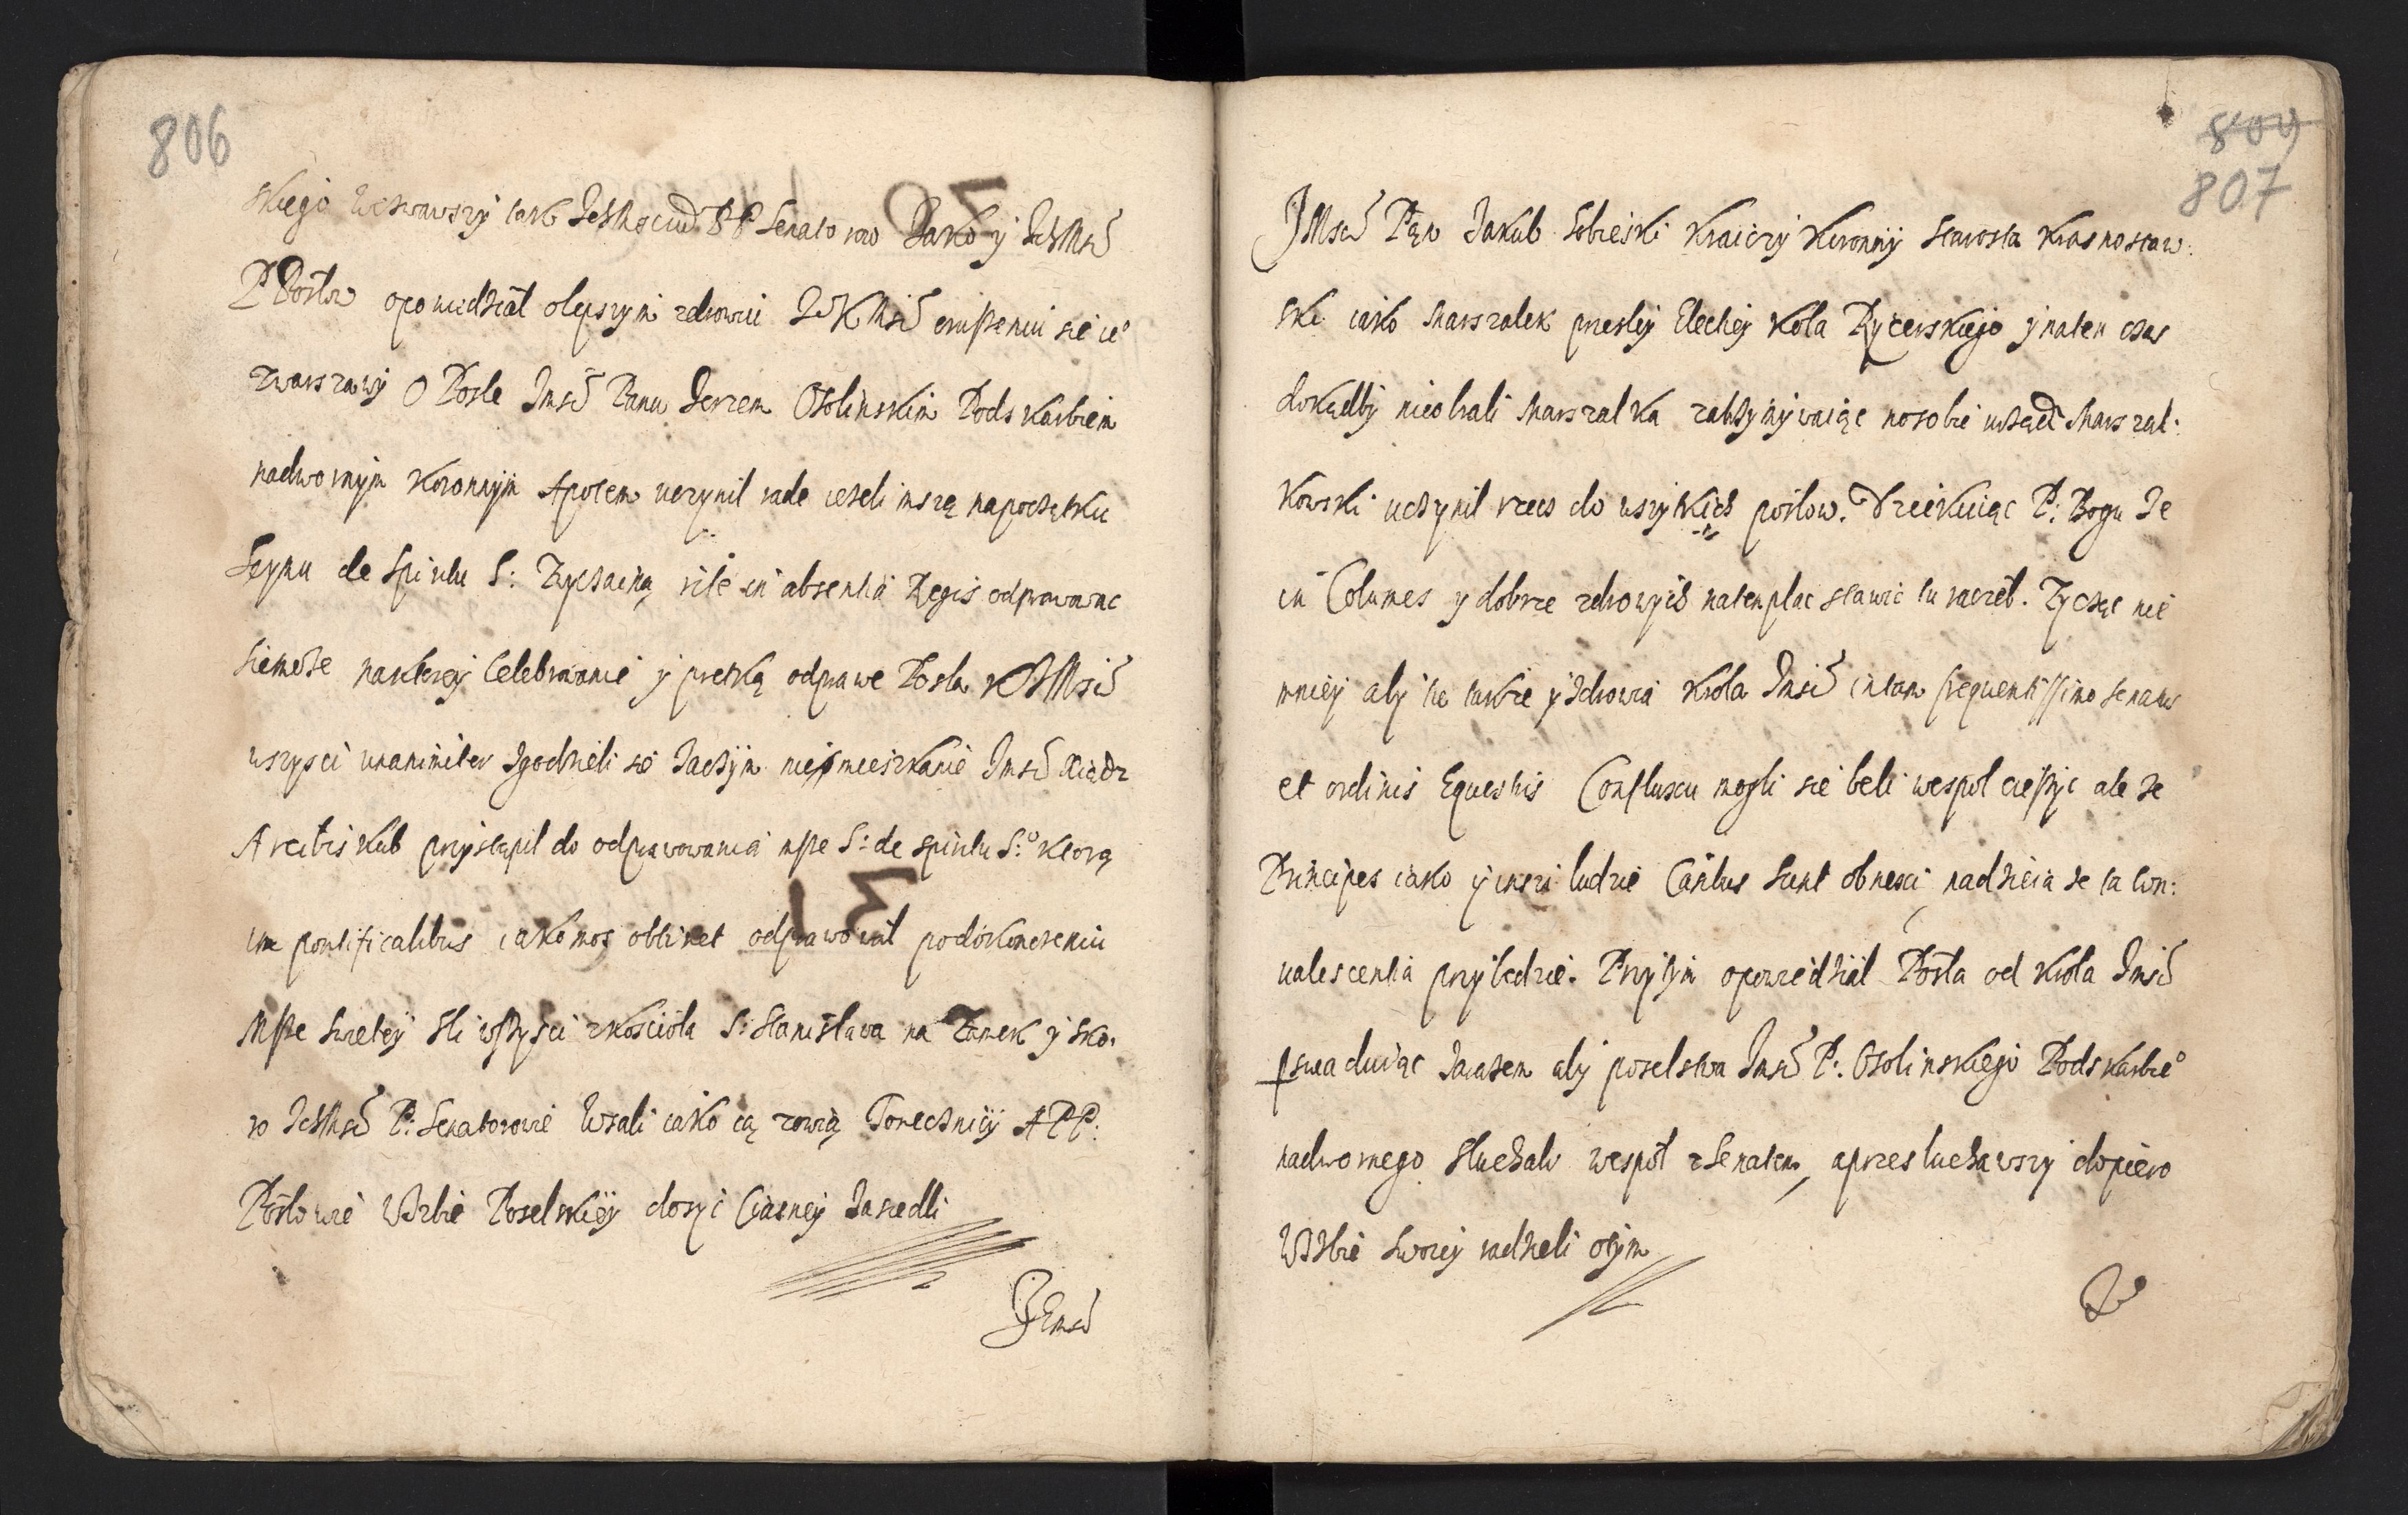 806
skiego wezwawszy tak Ichmosciuo PP Senatorow Jako y IchMsc
P Posłow opowiedział olepszym zdrowiu JoKMsci omisseniu sie ie°
zwarszawy O Posle Jmsci Panu Jerzem Osolinskim Podskarbiem
nadwornym Koronnym Apotem uczynil rade iezeli mszą napoczątku
Seymu de Spiritu S: Zwyczaina, rite in absentia Regis odprawowac
siemoze naktorej Celebrowanie y pretką odprawe Posla KJMsci
wszysci unanimiter zgodzieli sie zaczym nie mieszkanie Jmsc Xiądz
Arcibiskub przystąpil do odprawowania msze S: de spiritu S:° ktorą
in pontificalibus iako mos obtinet odprawowal podokonczeniu
Msze Swietey szli wszysci zkosciola S: Stanisława na Zamek y sko:
ro IchMsc P: Senatorowie Wzali iako ią zowią Toneczniey A PP:
Posłowie WIzbie Poselskiey dosyc Ciasney Zasiedli
JEmsc
809
807
JMsc Pąn Jakub Sobieski Kraiczy Koronny Starosta Krasnostaw:
ski iako Marszalek preslej Elechej Koła Rycerskiego y naten czas
dokądby nieobrali Marszalka zatrzymywaiąc nosobie urząd Marszal:
kowski uczynil rzecz do wszytkich posłow. Dziekuiąc P: Bogu Ze
in Columes y dobrze zdrowych natenplac stawic tu raczeł. Zycząc nie
mniey aby sie takze y zdrowia Krola Jmsci in tam frequentissimo senatus
et ordinis Equestris Confluxu mogli sie beli wespol cieszyc ale ze
Principes iako y inszi ludzie Casibus sunt obnoxi, nadzieia ze ta con:
ualescentia przybedzie. Przytym opowiedział Posła od Krola Jmsci
pswaduiąc zarazem aby poselstwa Jmsc P: Osolinskiego Podskarbie°
nadwornego sluchali wespoł zSenatem, aprzesluchawszy dopiero
WIzbie swoiej radzieli otym